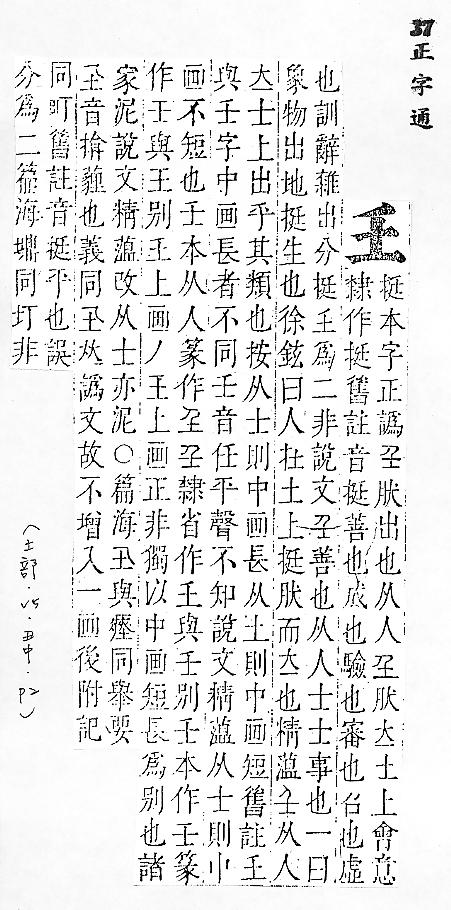 37 正字通
𡈼
挺本字正譌𡈼肰出也从人𡈼肰立土上會意
隸作挺舊註音挺善也成也驗也審也召也虛
也訓辭雜出分挺𡈼爲二非說文𡈼善也从人士士事也一曰
象物出地挺生也徐鉉曰人在土上挺肰而立也精薀𡈼从人
立士上出乎其類也按从士則中画長从土則中画短舊註𡈼
與壬字中画長者不同壬音任平聲不知說文精薀从士則中
画不短也𡈼本从人篆作𡈼𡈼隸省作𡈼與壬別壬本作壬篆
作壬與王別𡈼上画丿王上画正非獨以中画短長爲別也諸
家泥說文精薀改从士亦泥○篇海與瘞同舉要
音揜也義同譌文故不增入一画後附記
同町舊註音挺平也誤
分爲二篇海同圢非
（土部．丑中．P2）